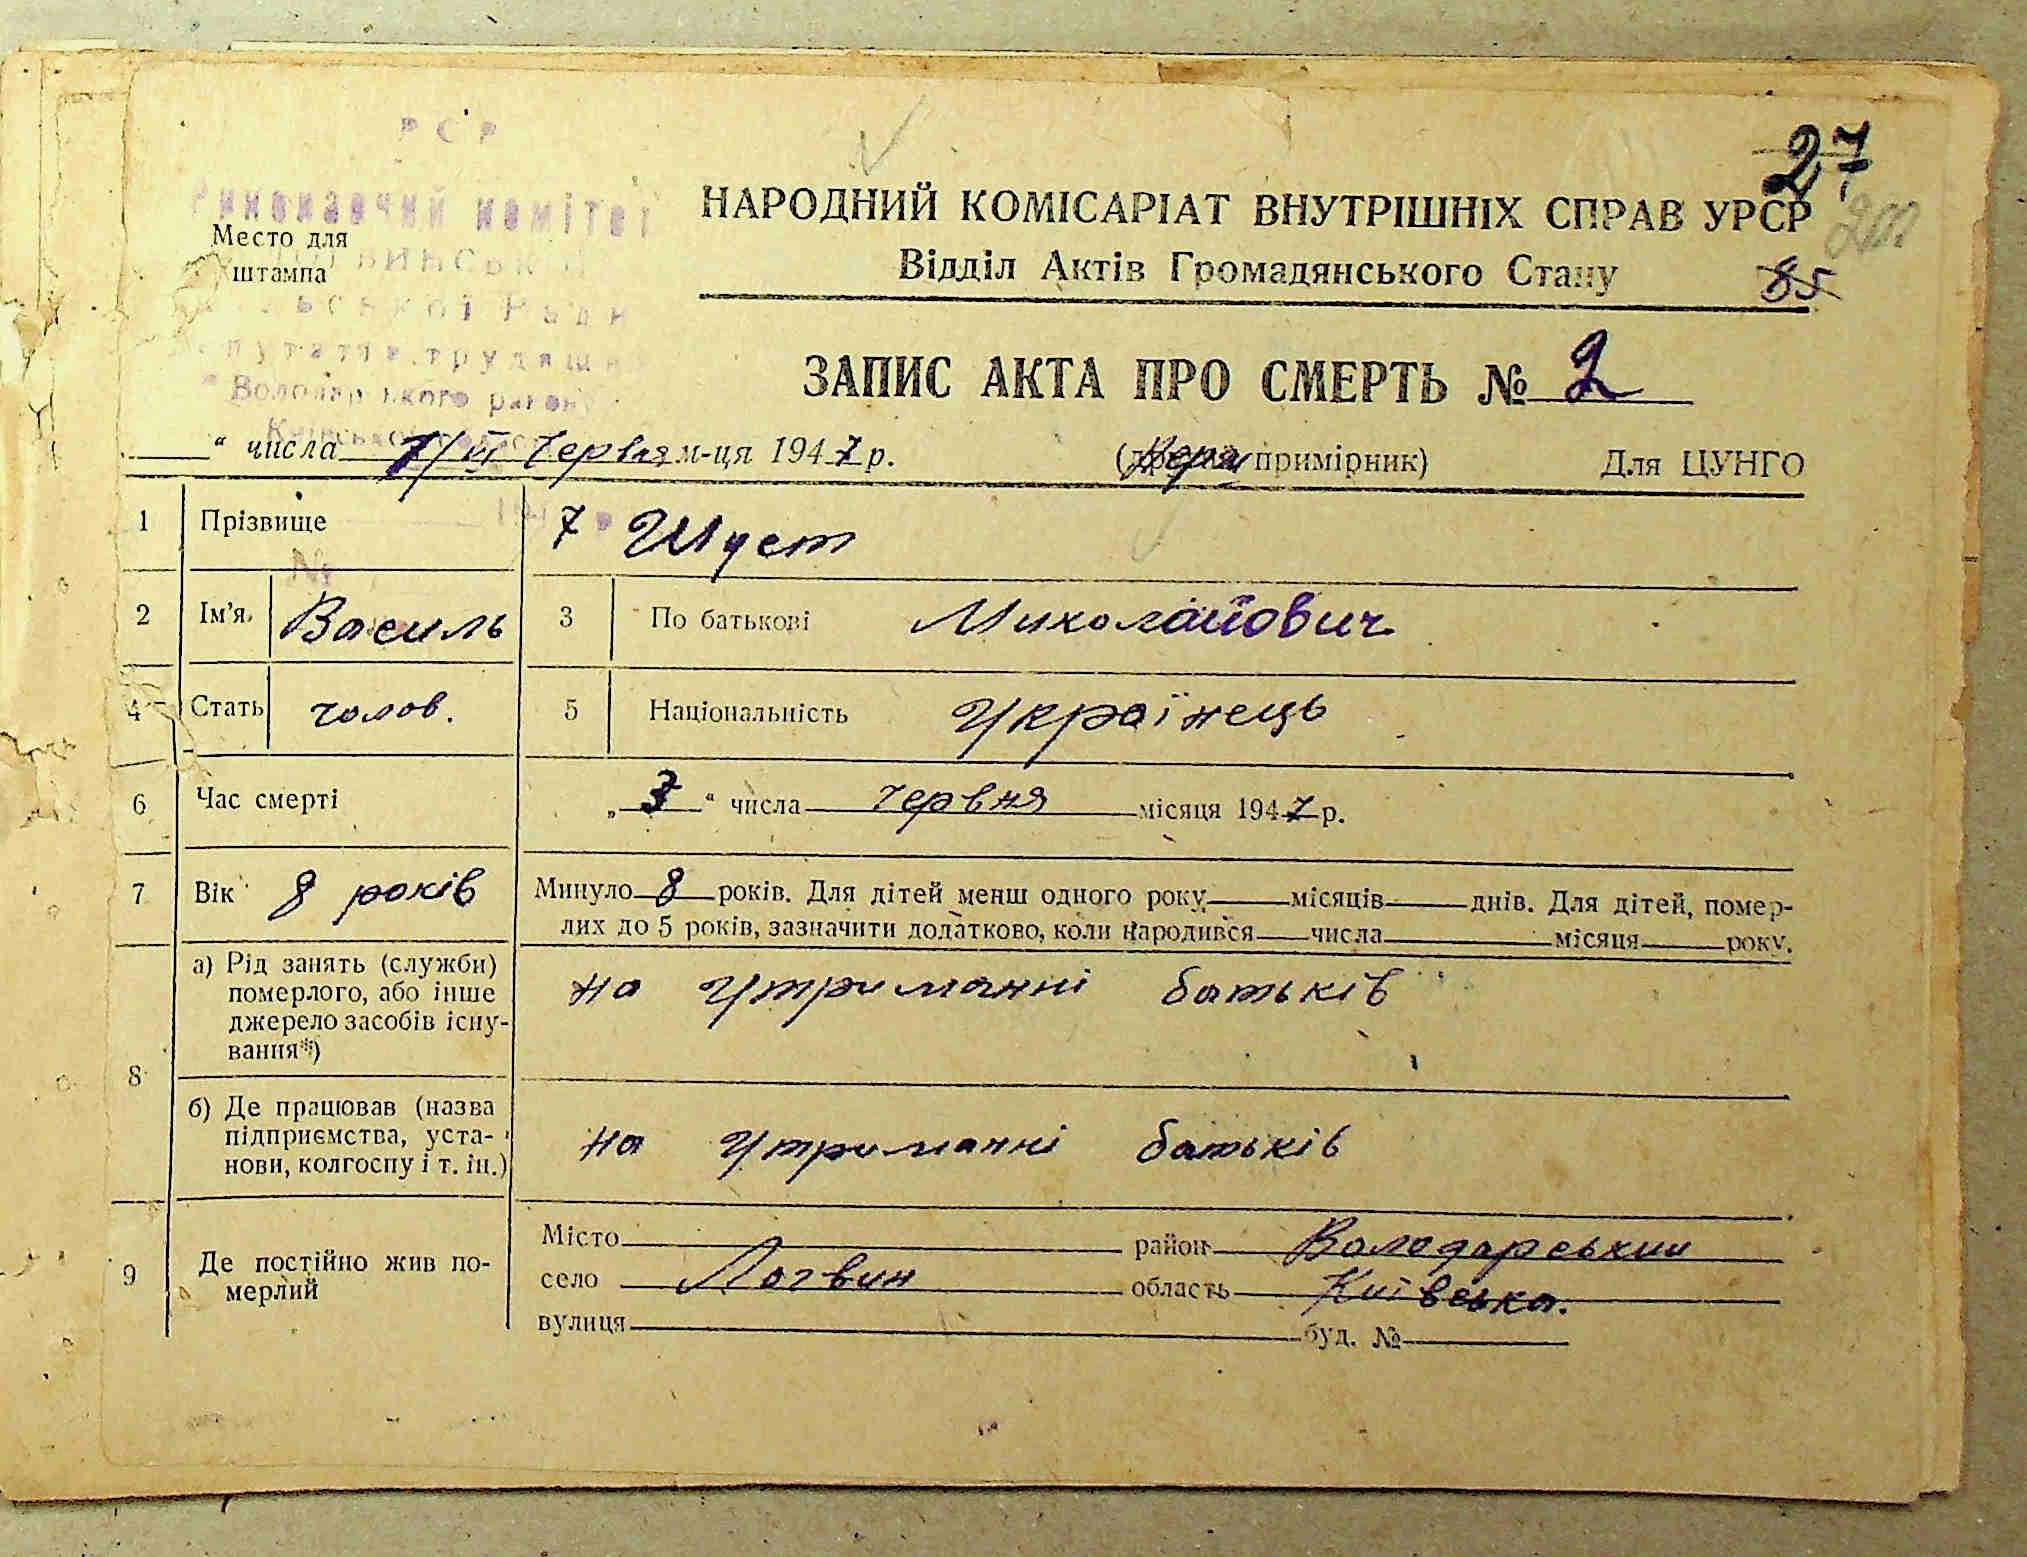 РСР
27
Виконавчий комітет
НАРОДНИЙ КОМІСАРІАТ ВНУТРІШНІХ СПРАВ УРСР
200
Место для
штампа
Відділ Актів Громадянського Стану
85
ЗАПИС АКТА ПРО СМЕРТЬ № 2
Володарського району
“ числа 7/VI Червня м-ця 1947 р.
примірник)
Для ЦУНГО
1 Прізвище 7 Шуст
№
2 Ім’я Василь 3 По батькові Миколайович
4 Стать чолов. 5 Національність Українець
6 Час смерті „3“ числа червня місяця 1947 р.
7 Вік 8 років Минуло 8 років. Для дітей менш одного року місяців днів. Для дітей, помер-
лих до 5 років, зазначити додатково, коли народився числа місяця року.
8
а) Рід занять (служби)
померлого, або інше
джерело засобів існу-
вання*)
на утриманні батьків
б) Де працював (назва
підприємства, уста-
нови, колгоспу і т. ін.)
на утриманні батьків
9 Де постійно жив по-
мерлий
Місто район Володарський
село Логвин область Київська.
вулиця буд. №